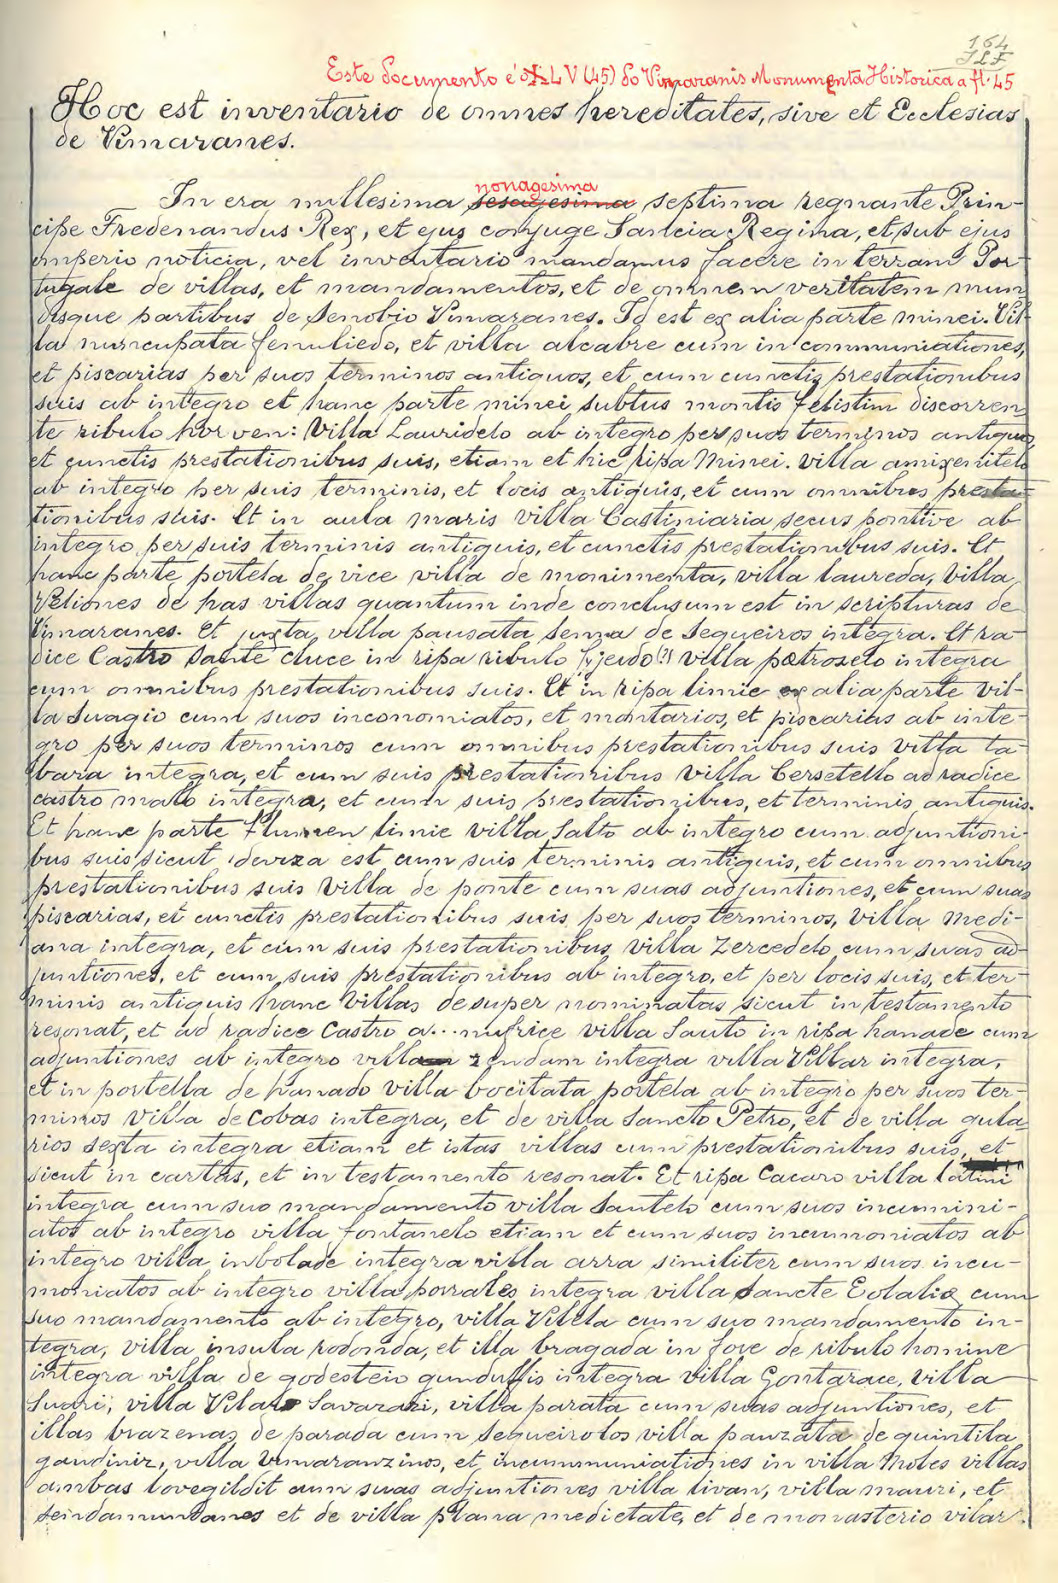 164
Este documento é o XLV (45) do Vimaranis Monumenta Historica a fl. 45
Hoc est inventario de omnes hereditates, sive et Ecclesias
de Vimaranes.
nonagesima
In era millesima sesagesima septima regnante Prin-
cipe Fredenandus Rex, et ejus conjuge Sancia Regina, et sub ejus
imperio noticia, vel inventario mandamus facere in terram Por-
tugale de villas, et mandamentos, et de omnem veritatem mun
disque partibus de Senobio Vimaranes. Id est ex alia parte minei. Vil-
la nuncupata fenuliedo, et villa alcabre cum in communiationes,
et piscarias per suos terminos antiquos, et cum cunctis prestationibus
suis ab integro et hanc parte minei subtus montis felistim discorren
te ribulo hor ven: Villa Lauridelo ab integro per suos terminos antiquos
et cunctis prestationibus suis, etiam et hic ripa Minei. villa amixenitelo
ab integro per suis terminis, et locis antiquis, et cum omnibus presta-
tionibus suis. Et in aula maris villa Castiniaria secus pontive ab
integro per suis terminis antiquis, et cunctis prestationibus suis. Et
hanc parte portela de vice villa de monimenta, villa laureda, Villa
Petiones de has villas quantum inde conclusum est in scripturas de
Vimaranes. Et juxta villa pausata senra de Sequeiros integra. Et ra-
dice Castro Sante cruce in ripa ribulo villa petroselo integra
cum omnibus prestationibus suis. Et in ripa limie ex alia parte vil-
la Suagio cum suos inconomiatos, et montarios, et piscarias ab inte-
gro per suos terminos cum omnibus prestationibus suis villa la-
bara integra, et cum suis prestationibus villa Cersetello ad radice
castro malo integra, et cum suis prestationibus, et terminis antiquis.
Et hanc parte flumen limie villa Salto ab integro cum adjuntioni-
bus suis sicut deviza est cum suis terminis antiquis, et cum omnibus
prestationibus suis Villa de ponte cum suas adjuntiones, et cum suas
piscarias, et cunctis prestationibus suis per suos terminos, Villa Medi-
ana integra, et cum suis prestationibus villa Zercedelo cum suas ad-
juntiones, et cum suis prestationibus ab integro, et per locis suis, et ter-
minis antiquis hanc Villas desuper nominatas sicut in testamento
resonat, et ad radice Castro a... mufrice villa Sauto in ripa hanade cum
adjuntiones ab integro villa zendam integra villa Villar integra,
et in portella de hanado villa bocitata portela ab integro per suos ter-
minos Villa de Cobas integra, et de villa Sancto Petro, et de villa gula
rios sexta integra etiam et istas villas cum prestationibus suis, et
sicut in cartas, et in testamento resonat. Et ripa Cacaro villa latini
integra cum suo mandamento villa Sautelo cum suos incumuni-
atos ab integro villa fontanelo etiam et cum suos incumoniatos ab
integro villa imbolade integra villa arra similiter cum suos incu-
moniatos ab integro villa porrales integra villa Sancte Eolalie cum
suo mandamento ab integro, villa Vilela cum suo mandamento in-
tegra, villa insula rodonda, et illa bragada in foce de ribulo homine
integra villa de godesteio gundulfis integra villa Gontarace, villa
Suari, villa Vilar Savarari, villa parata cum suas adjuntiones, et
illas brazenas de parada cum sequeirolos villa pauzata de quintila
gaudiniz, villa Vimaranzinos, et incummuniationes in villa Moles villas
ambas lovegildit cum suas adjuntiones villa livan, villa mauri, et
seindamundanes et de villa plana medietate, et de monasterio vilar.